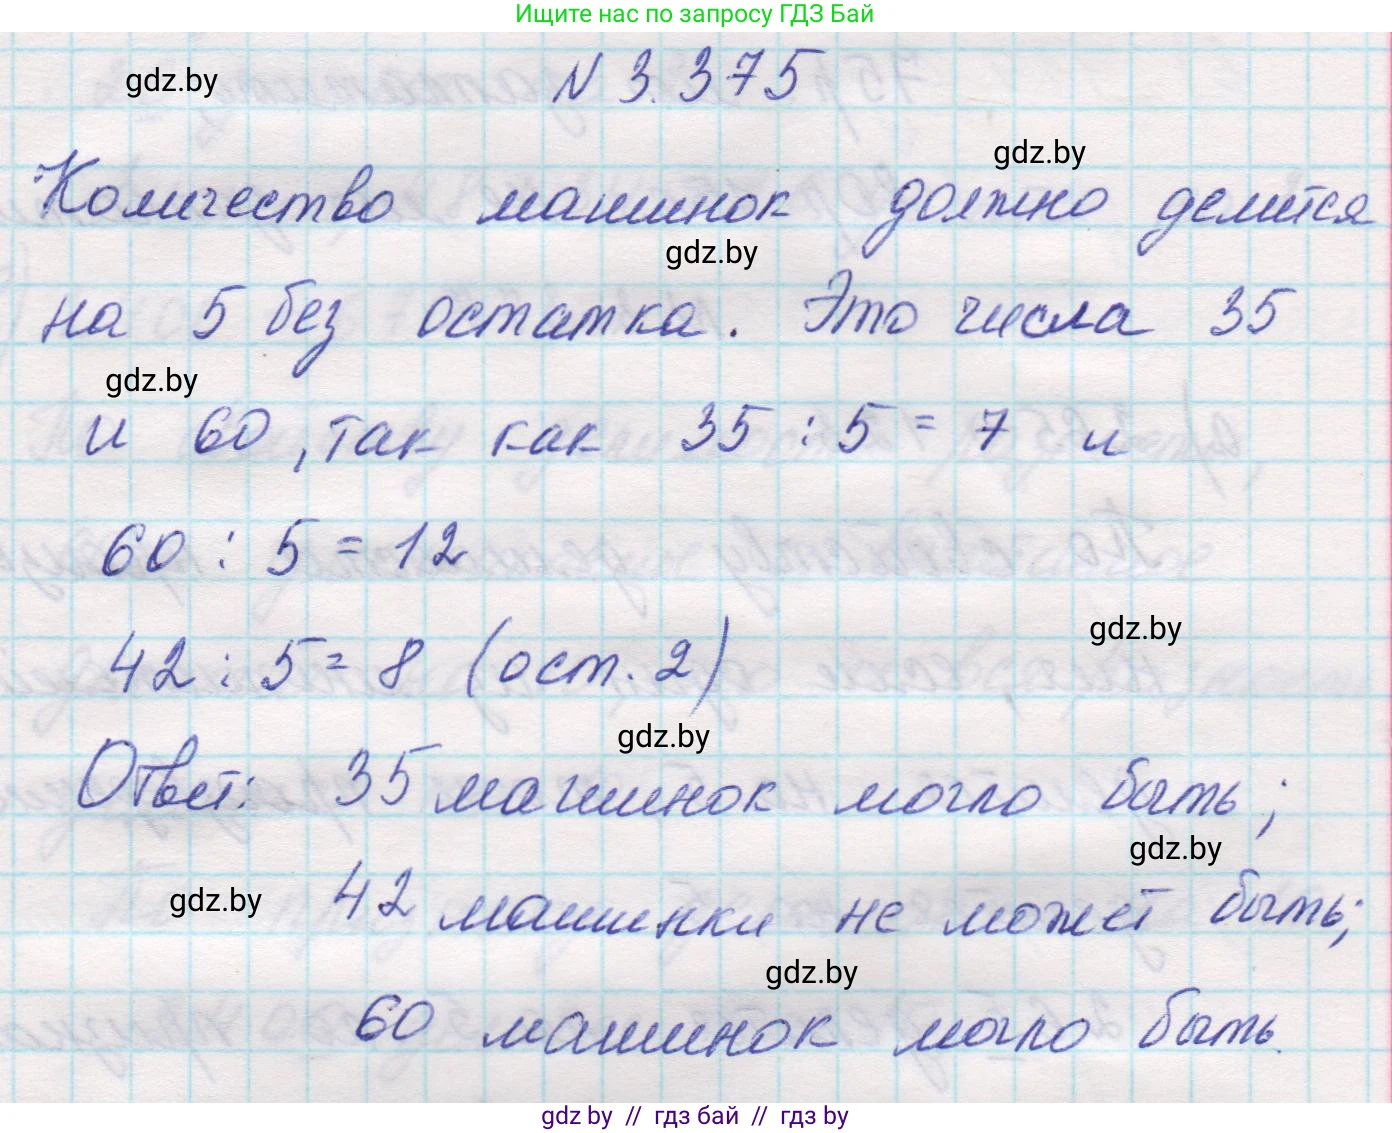 Ищите нас по запросу ГДЗ Бай
N 3.375
gdz.by
gdz.by
Количество машинок должно делится
gdz.by
на 5 без остатка. Это числа 35
gdz.by
и 60, так как 35 : 5 = 7 и
60 : 5 = 12
gdz.by
42 : 5 = 8 (ост. 2)
gdz.by
Ответ: 35 машинок могло быть;
gdz.by
gdz.by
42 машинки не может быть;
gdz.by
60 машинок могло быть.
gdz.by // гдз бай // гдз by